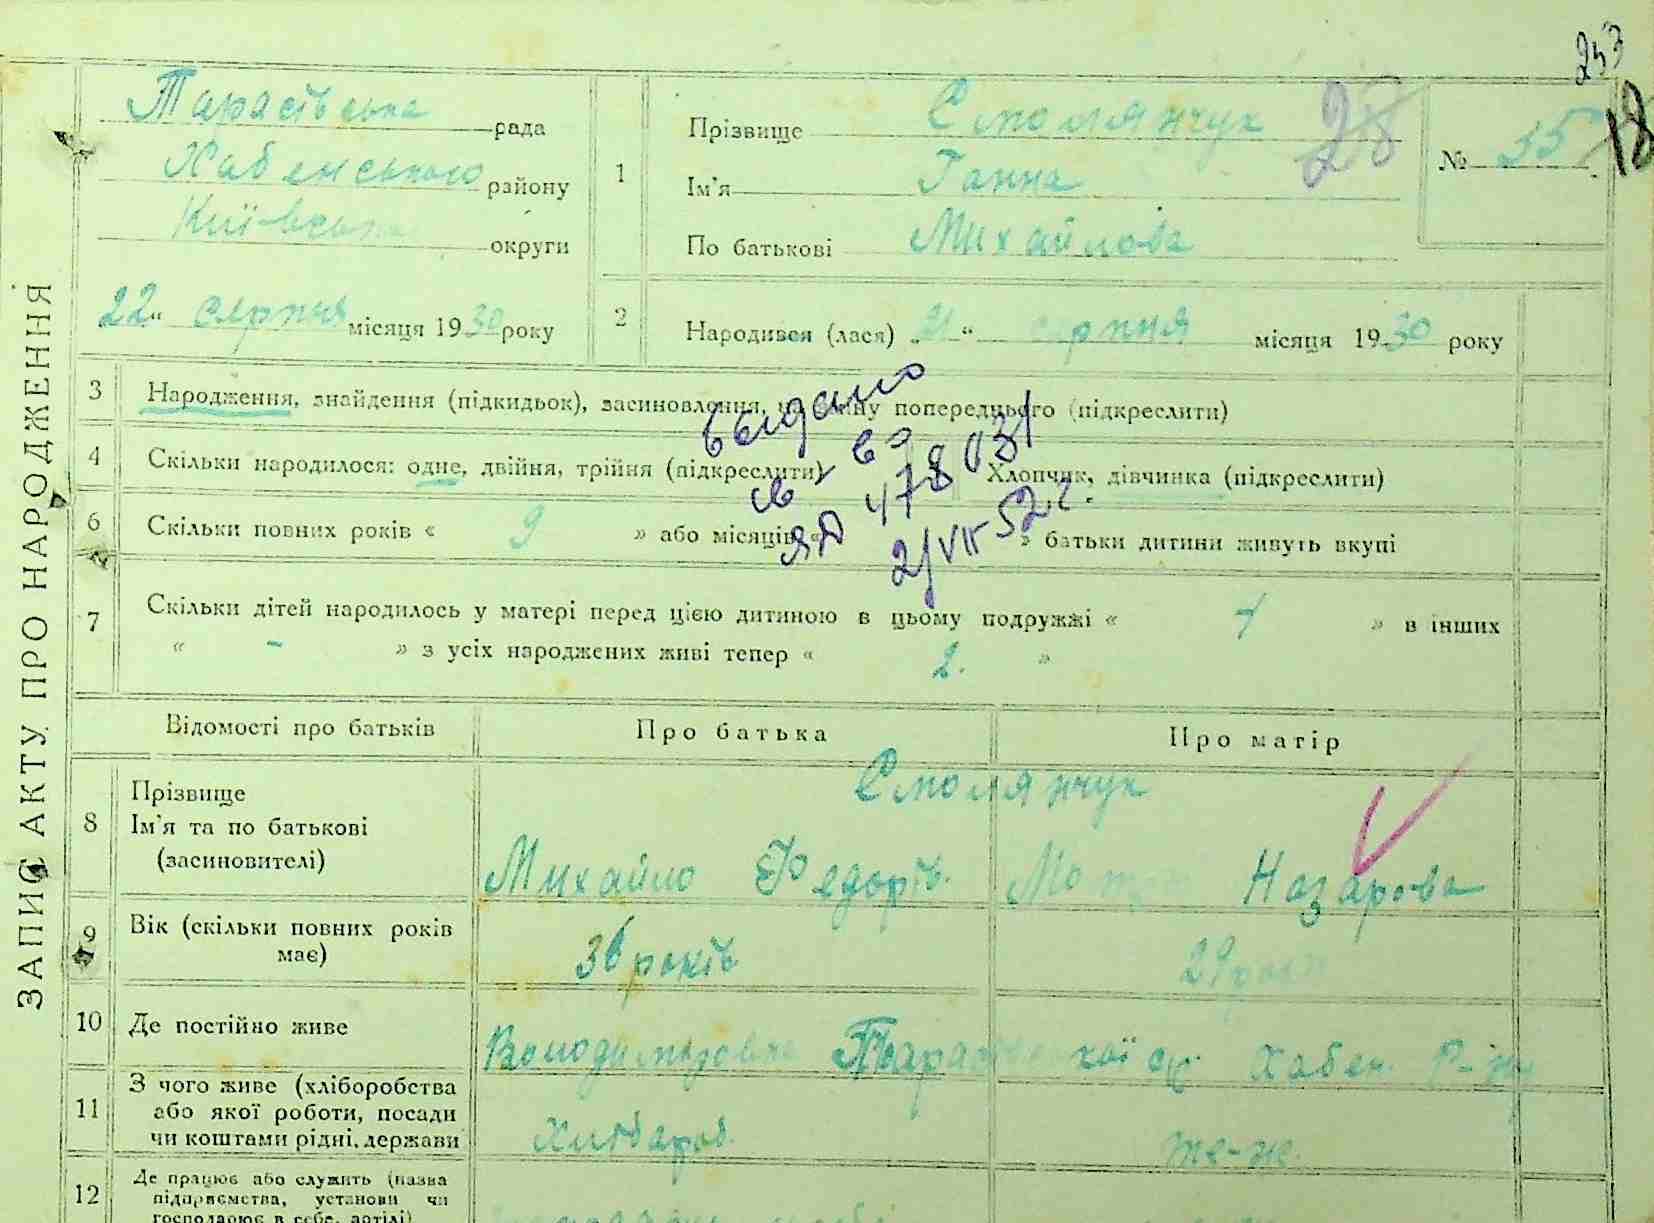 253
18
28
ЗАПИС АКТУ ПРО НАРОДЖЕННЯ
Тарасівська рада
Хабенського району
Київська округи
22 „ серпня місяця 1930 року
1
Прізвище Смолянчук
Ім'я Ганна
По батькові Михайлова
№ 35
2
Народився (лася) „21“ серпня місяця 1930 року
3 Народження, знайдення (підкидьок), засиновлення, попереднього (підкреслити)
4 Скільки народилося: одне, двійня, трійня (підкреслити) Хлопчик, дівчинка (підкреслити)
выдано
св во
ЯД 478031
2/VII 52 г.
6 Скільки повних років « 9 » або місяців « » батьки дитини живуть вкупі
7 Скільки дітей народилось у матері перед цією дитиною в цьому подружжі « 1 » в інших
« - » з усіх народжених живі тепер « 2. »
Відомості про батьків Про батька Про матір
8 Прізвище Смолянчук
Ім'я та по батькові
(засиновителі) Михайло Федорів. Назарова
9 Вік (скільки повних років
має) 36 років 29
10 Де постійно живе Хабен. р-ну
11 З чого живе (хліборобства
або якої роботи, посади
чи коштами рідні, держави Хлібароб. те-ж.
12 Де працює або служить (назва
підприємства, установи чи
господарює в себе, артілі)